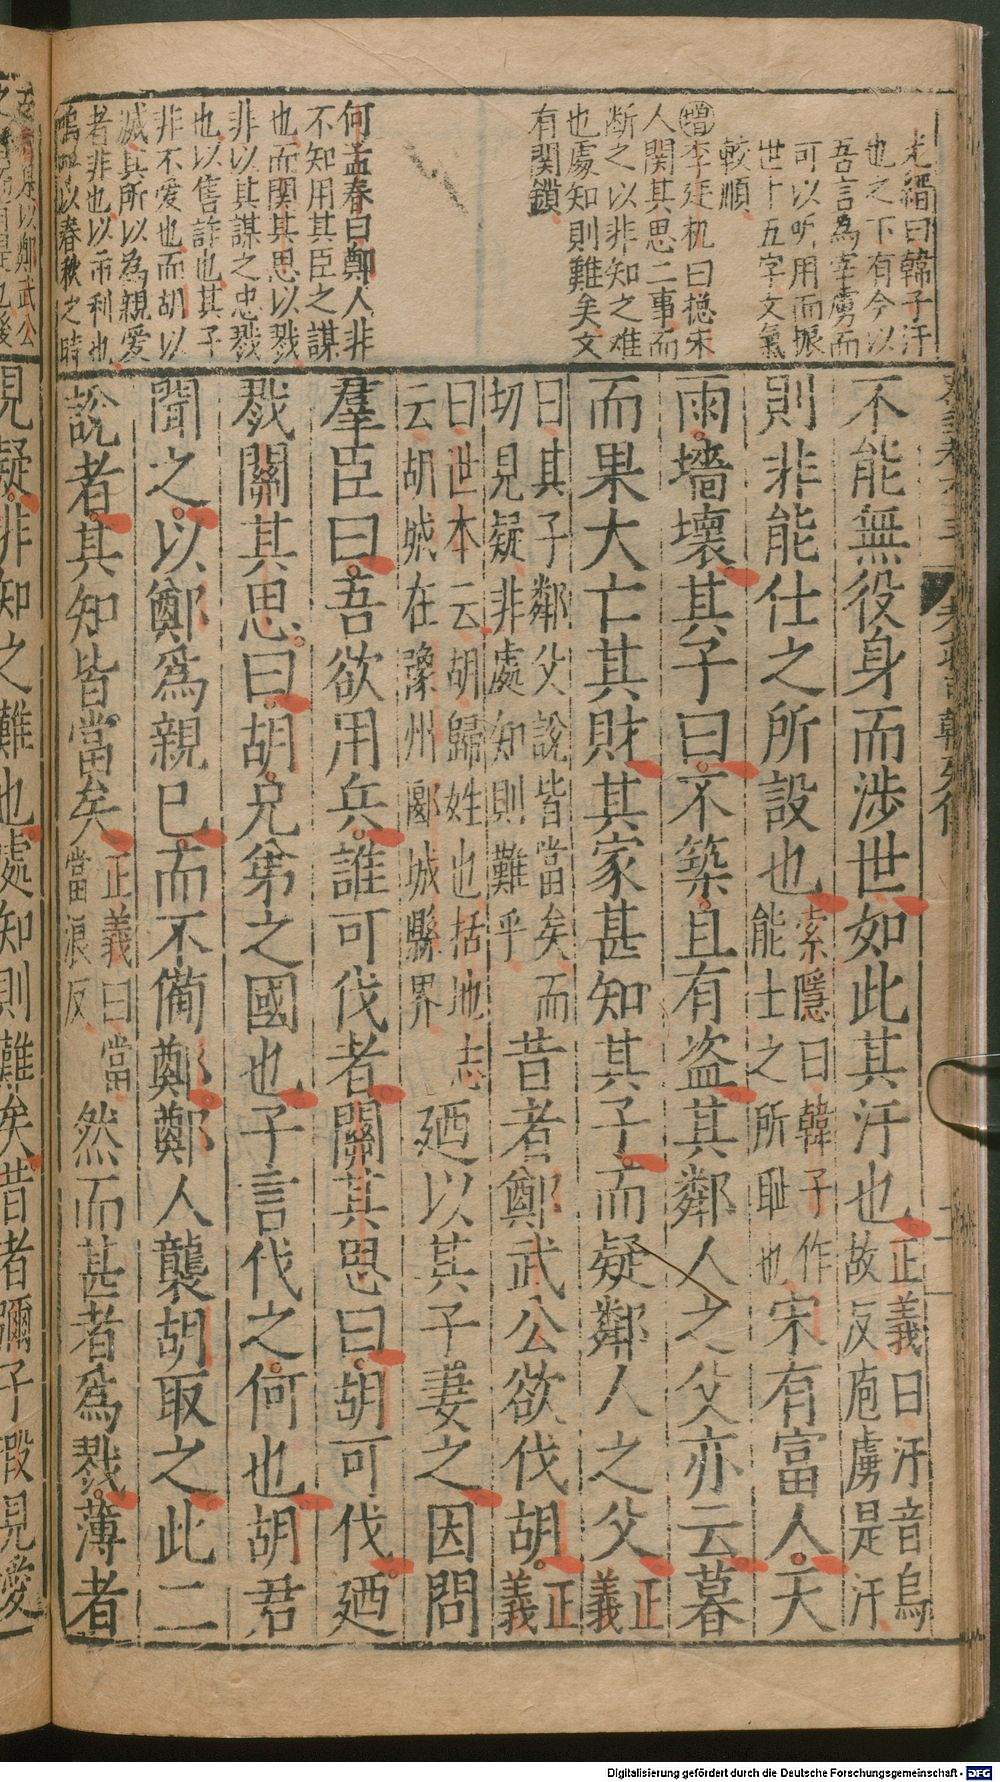 光縉曰韓子汙
也之下有今以
吾言為宰虜而
可以听用而振
世十五字文氣
較順
增李廷机曰總宋
人関其思二事而
断之以非知之难
也處知則難矣文
有関鎖
何孟春曰鄭人非
不知用其臣之謀
也而関其思以戮
非以其謀之忠戮
也以售詐也其子
非不爱也而胡以
滅其所以為親爱
者非也以市利也
嗚呼以春秋之時
不能無役身而涉世如此其汙也正義曰汙音烏故反庖虜是汙
則非能仕之所設也索隱曰韓子作能士之所耻也宋有富人天
雨墻壞其子曰不築且有盗其鄰人之父亦云暮
而果大亡其財其家甚知其子而疑鄰人之父正義
曰其子鄰父說皆當矣而切見疑非處知則難乎昔者鄭武公欲伐胡正義
曰世本云胡歸姓也括地志云胡城在豫州郾城縣界廼以其子妻之因問
羣臣曰吾欲用兵誰可伐者關其思曰胡可伐廼
戮關其思曰胡兄弟之國也子言伐之何也胡君
聞之以鄭爲親已而不備鄭鄭人襲胡取之此二
說者其知皆當矣正義曰當當浪反然而甚者爲戮薄者
見疑非知之難也處知則難矣昔者彌子瑕見愛
Digitalisierung gefördert durch die Deutsche Forschungsgemeinschaft - DFG